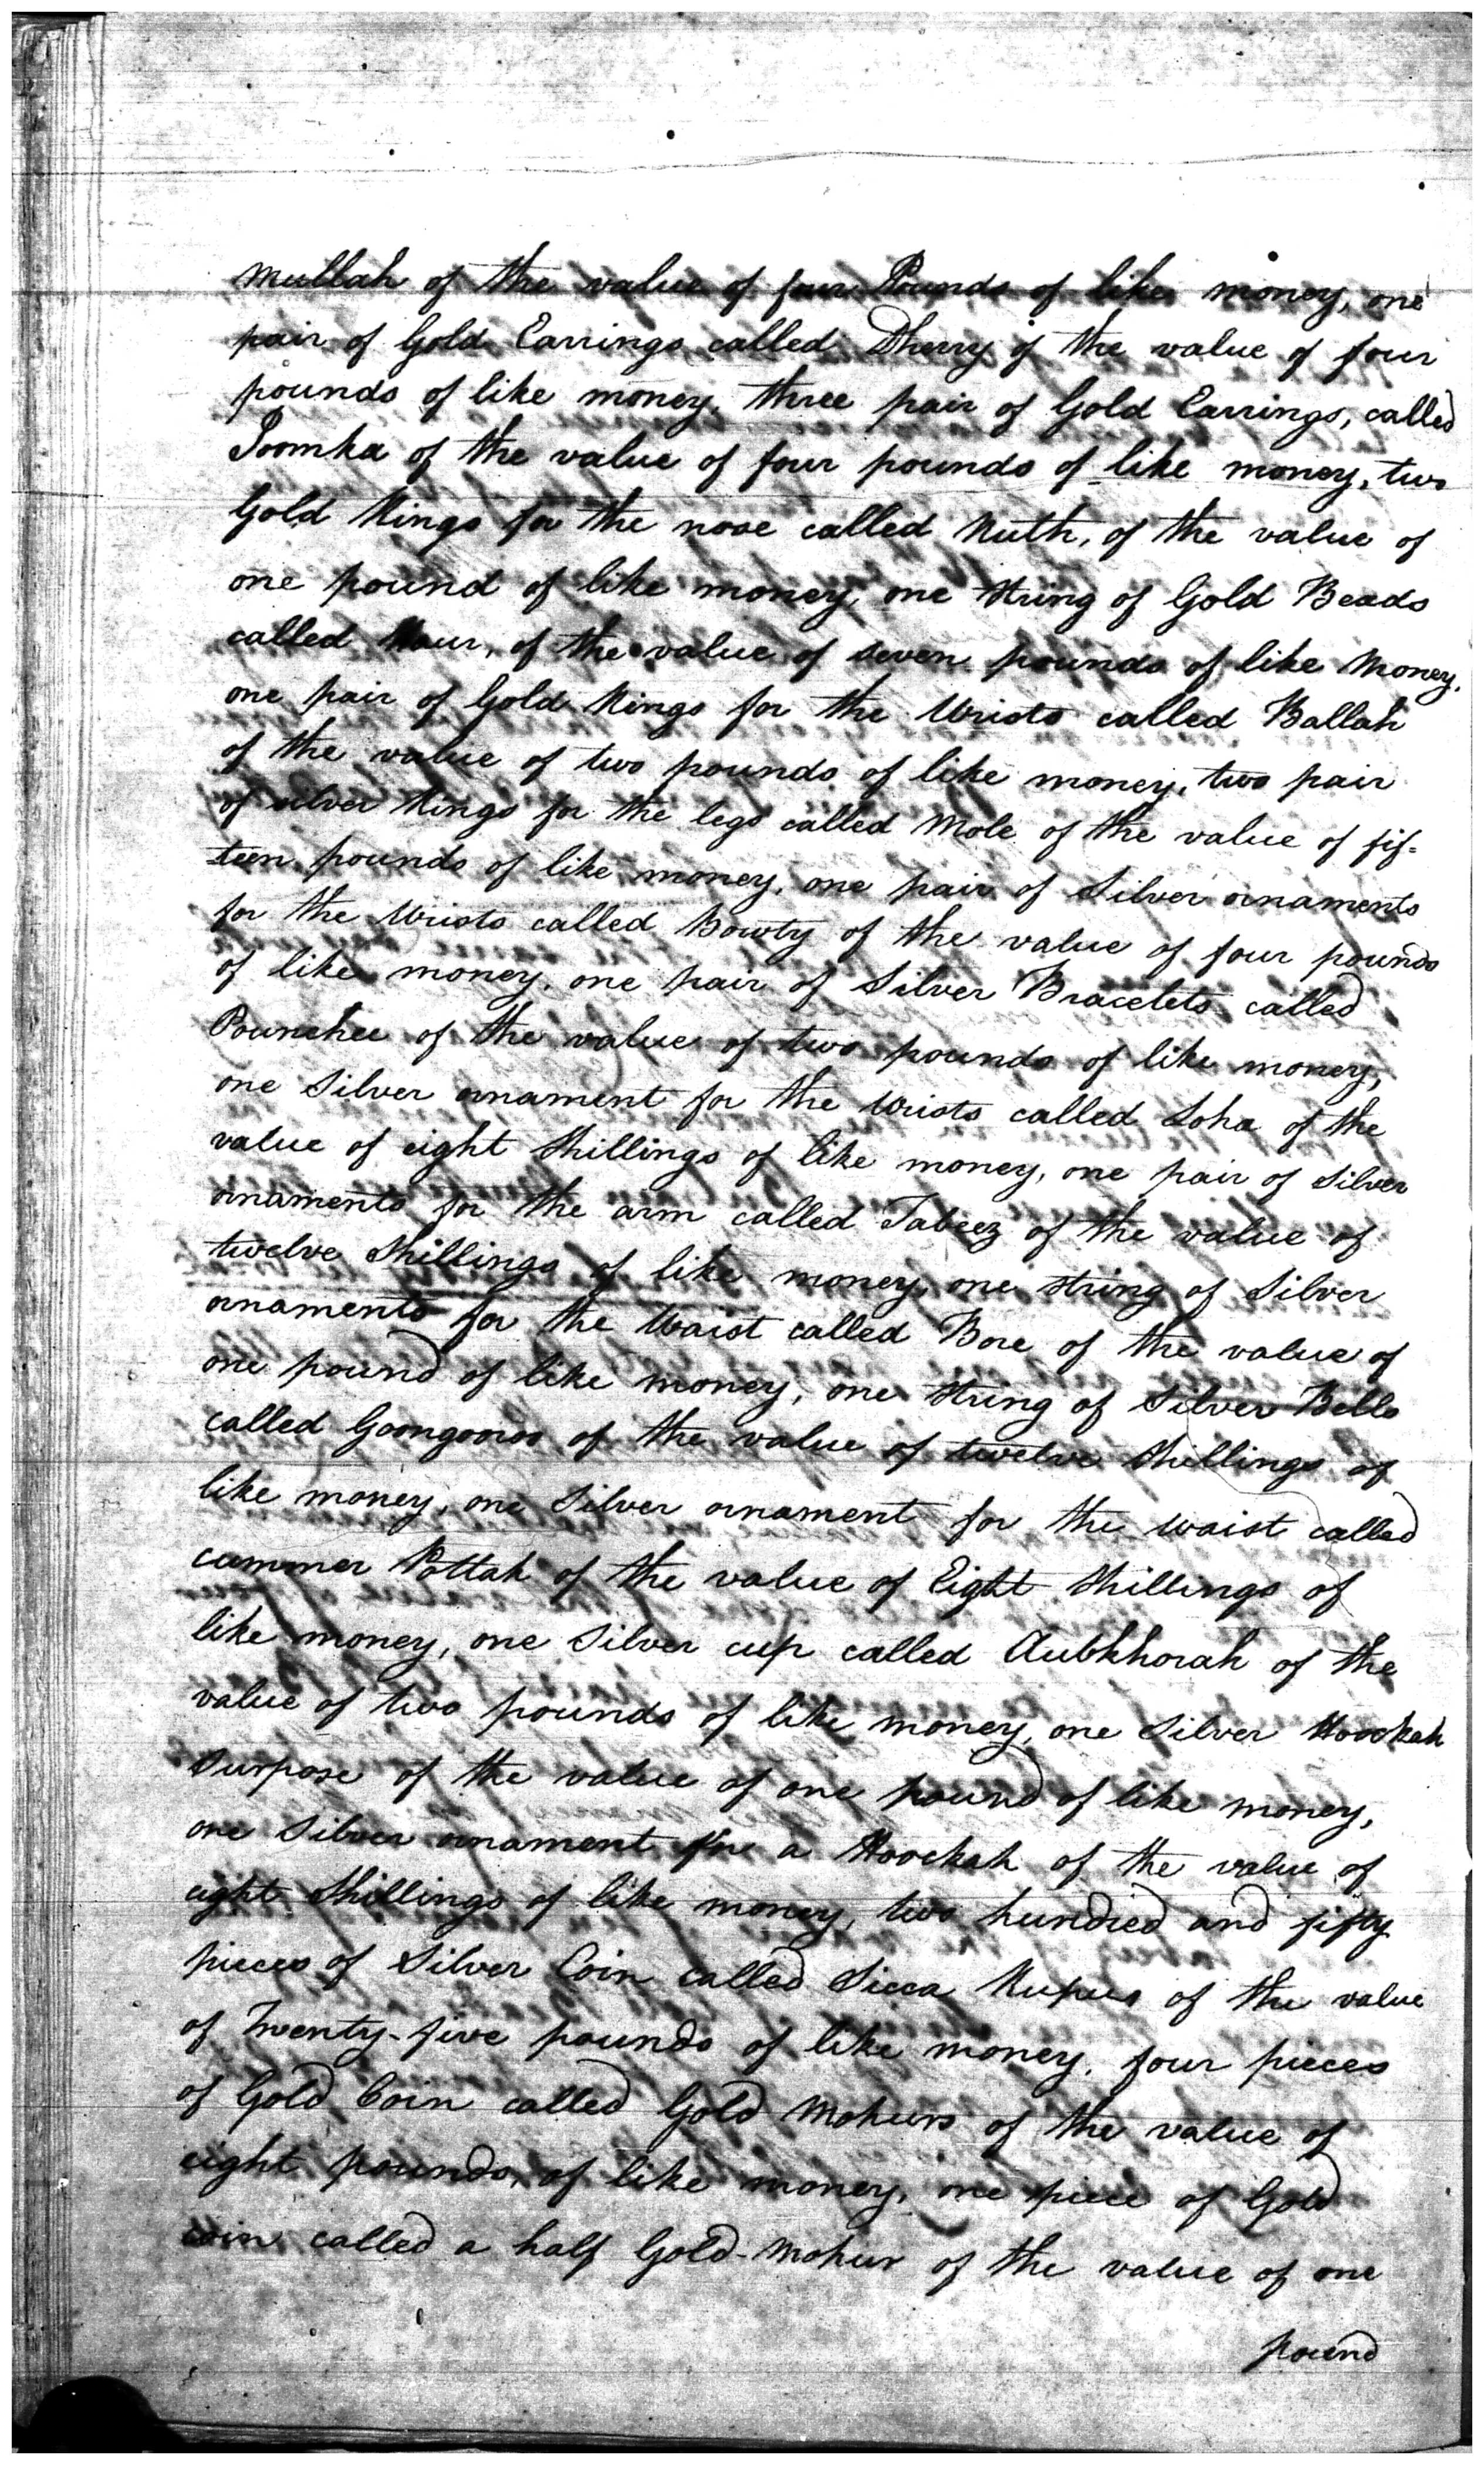 Mullah of the value of four Pounds of like money, one
pair of Gold Earrings called Dherry of the value of four
pounds of like money, three pair of Gold Earrings, called
Joomka of the value of four pounds of like money, two
Gold Rings for the nose called Nuth, of the value of
one pound of like money, one string of Gold Beads
called Haur, of the value of seven pounds of like money,
one pair of Gold Rings for the Wrists called Ballah
of the value of two pounds of like money, two pair
of silver Rings for the legs called Mole of the value of fif-
teen pounds of like money, one pair of Silver ornaments
for the Wrists called Bowty of the value of four pounds
of like money, one pair of Silver Bracelets called
Pounchee of the value of two pounds of like money,
one Silver ornament for the Wrists called Loha of the
value of eight Shillings of like money, one pair of Silver
ornaments for the arm called Tabeez of the value of
twelve Shillings of like money, one string of Silver
ornaments for the Waist called Bore of the value of
one pound of like money, one string of Silver Bells
called Goongooroo of the value of twelve Shillings of
like money, one Silver ornament for the waist called
cummer Pottah of the value of Eight Shillings of
like money, one Silver cup called Aubkhorah of the
value of two pounds of like money, one Silver Hookah
Surpose of the value of one pound of like money,
one Silver ornament for a Hookah of the value of
eight Shillings of like money, two hundred and fifty
pieces of Silver Coin called Sicca Rupees of the value
of Twenty-five pounds of like money, four pieces
of Gold Coin called Gold Mohurs of the value of
eight pounds, of like money, one piece of Gold
coin called a half Gold-Mohur of the value of one
pound